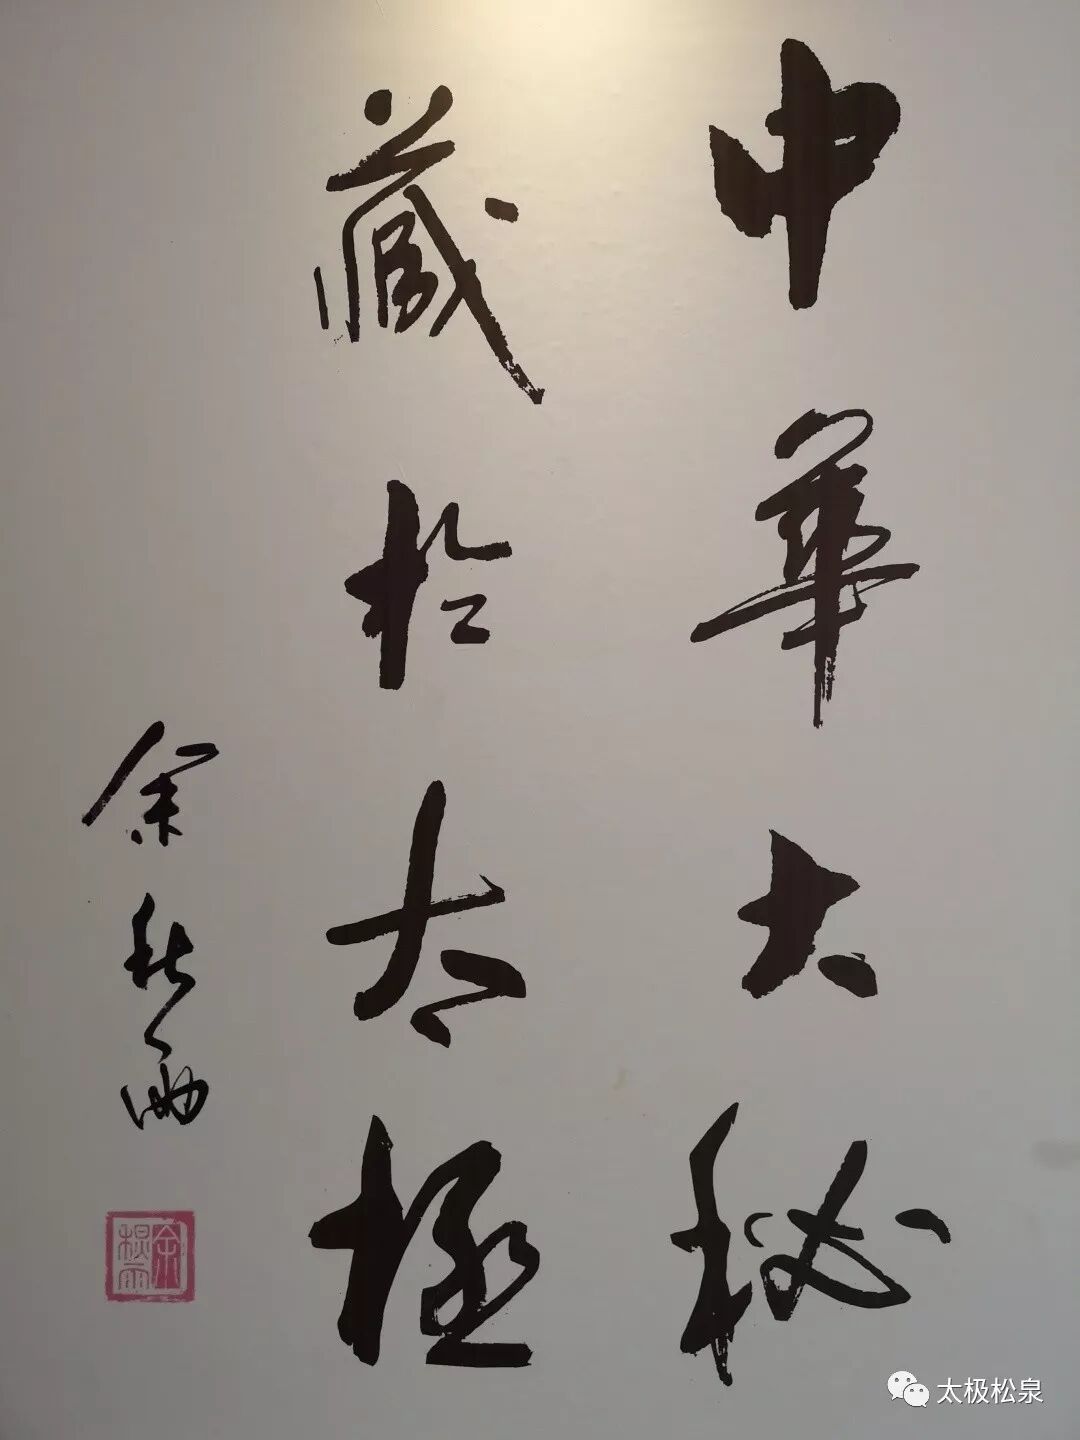 中華大秘
藏於太極
余秋雨
太极松泉